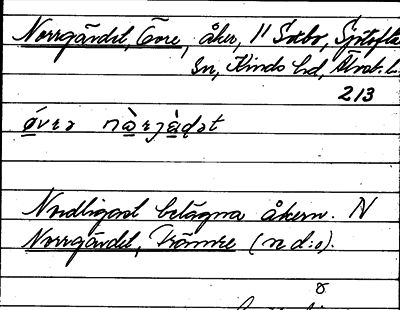 Norrgärdet, Övre, åker, 11 Sæbo, Sjötofta
sn, Kinds hd, Älvsb. l.
213
övrə nòrjàḍət
Nordligast belägna åkern. N
Norrgärdet, Främre (n d:o).